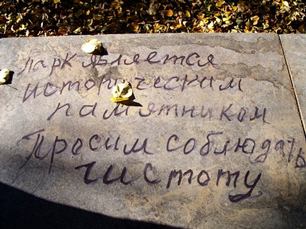 Парк является
историческим
памятником
Просим соблюдать
чистоту